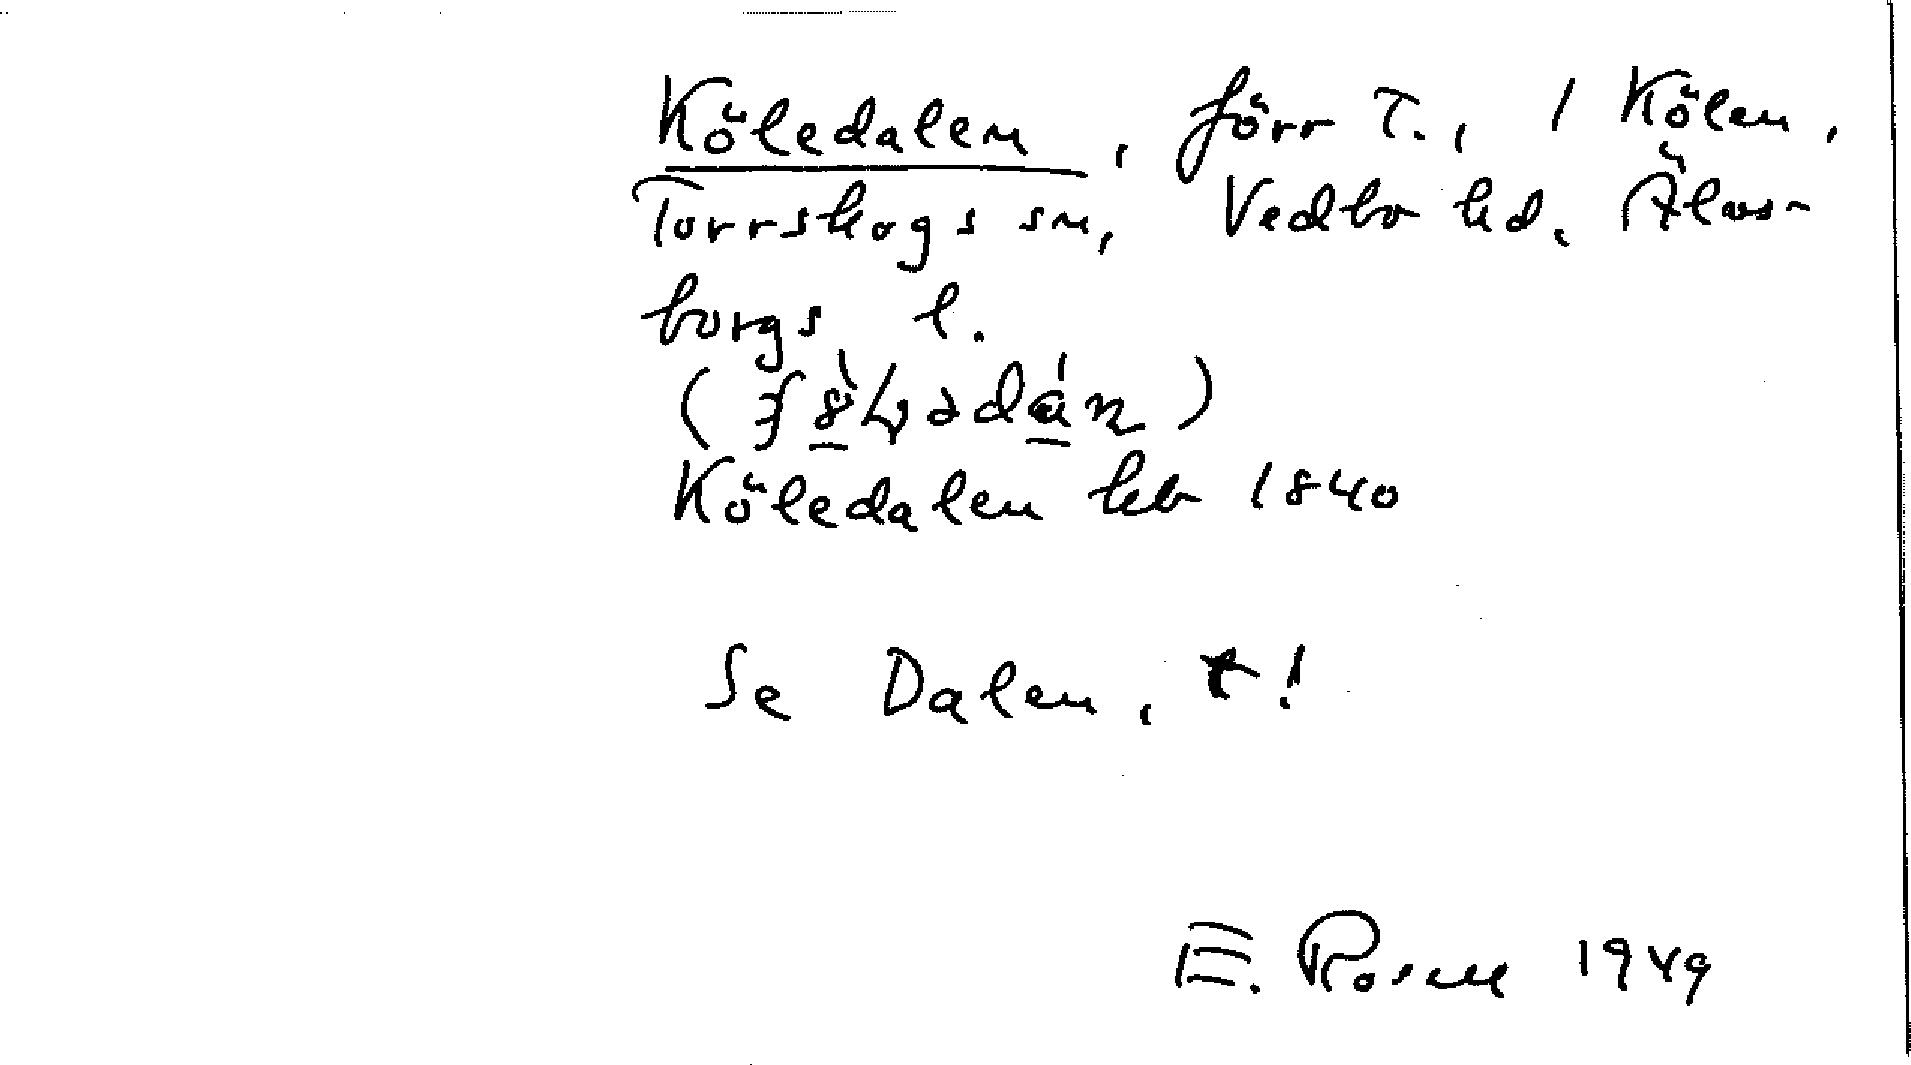 Köledalen, förr T., / Kölen,
Torrskogs sn, Vedbo hd. Älvs-
borgs l.
Köledalen hb 1840
Se Dalen, t!
E. Rosell 1949